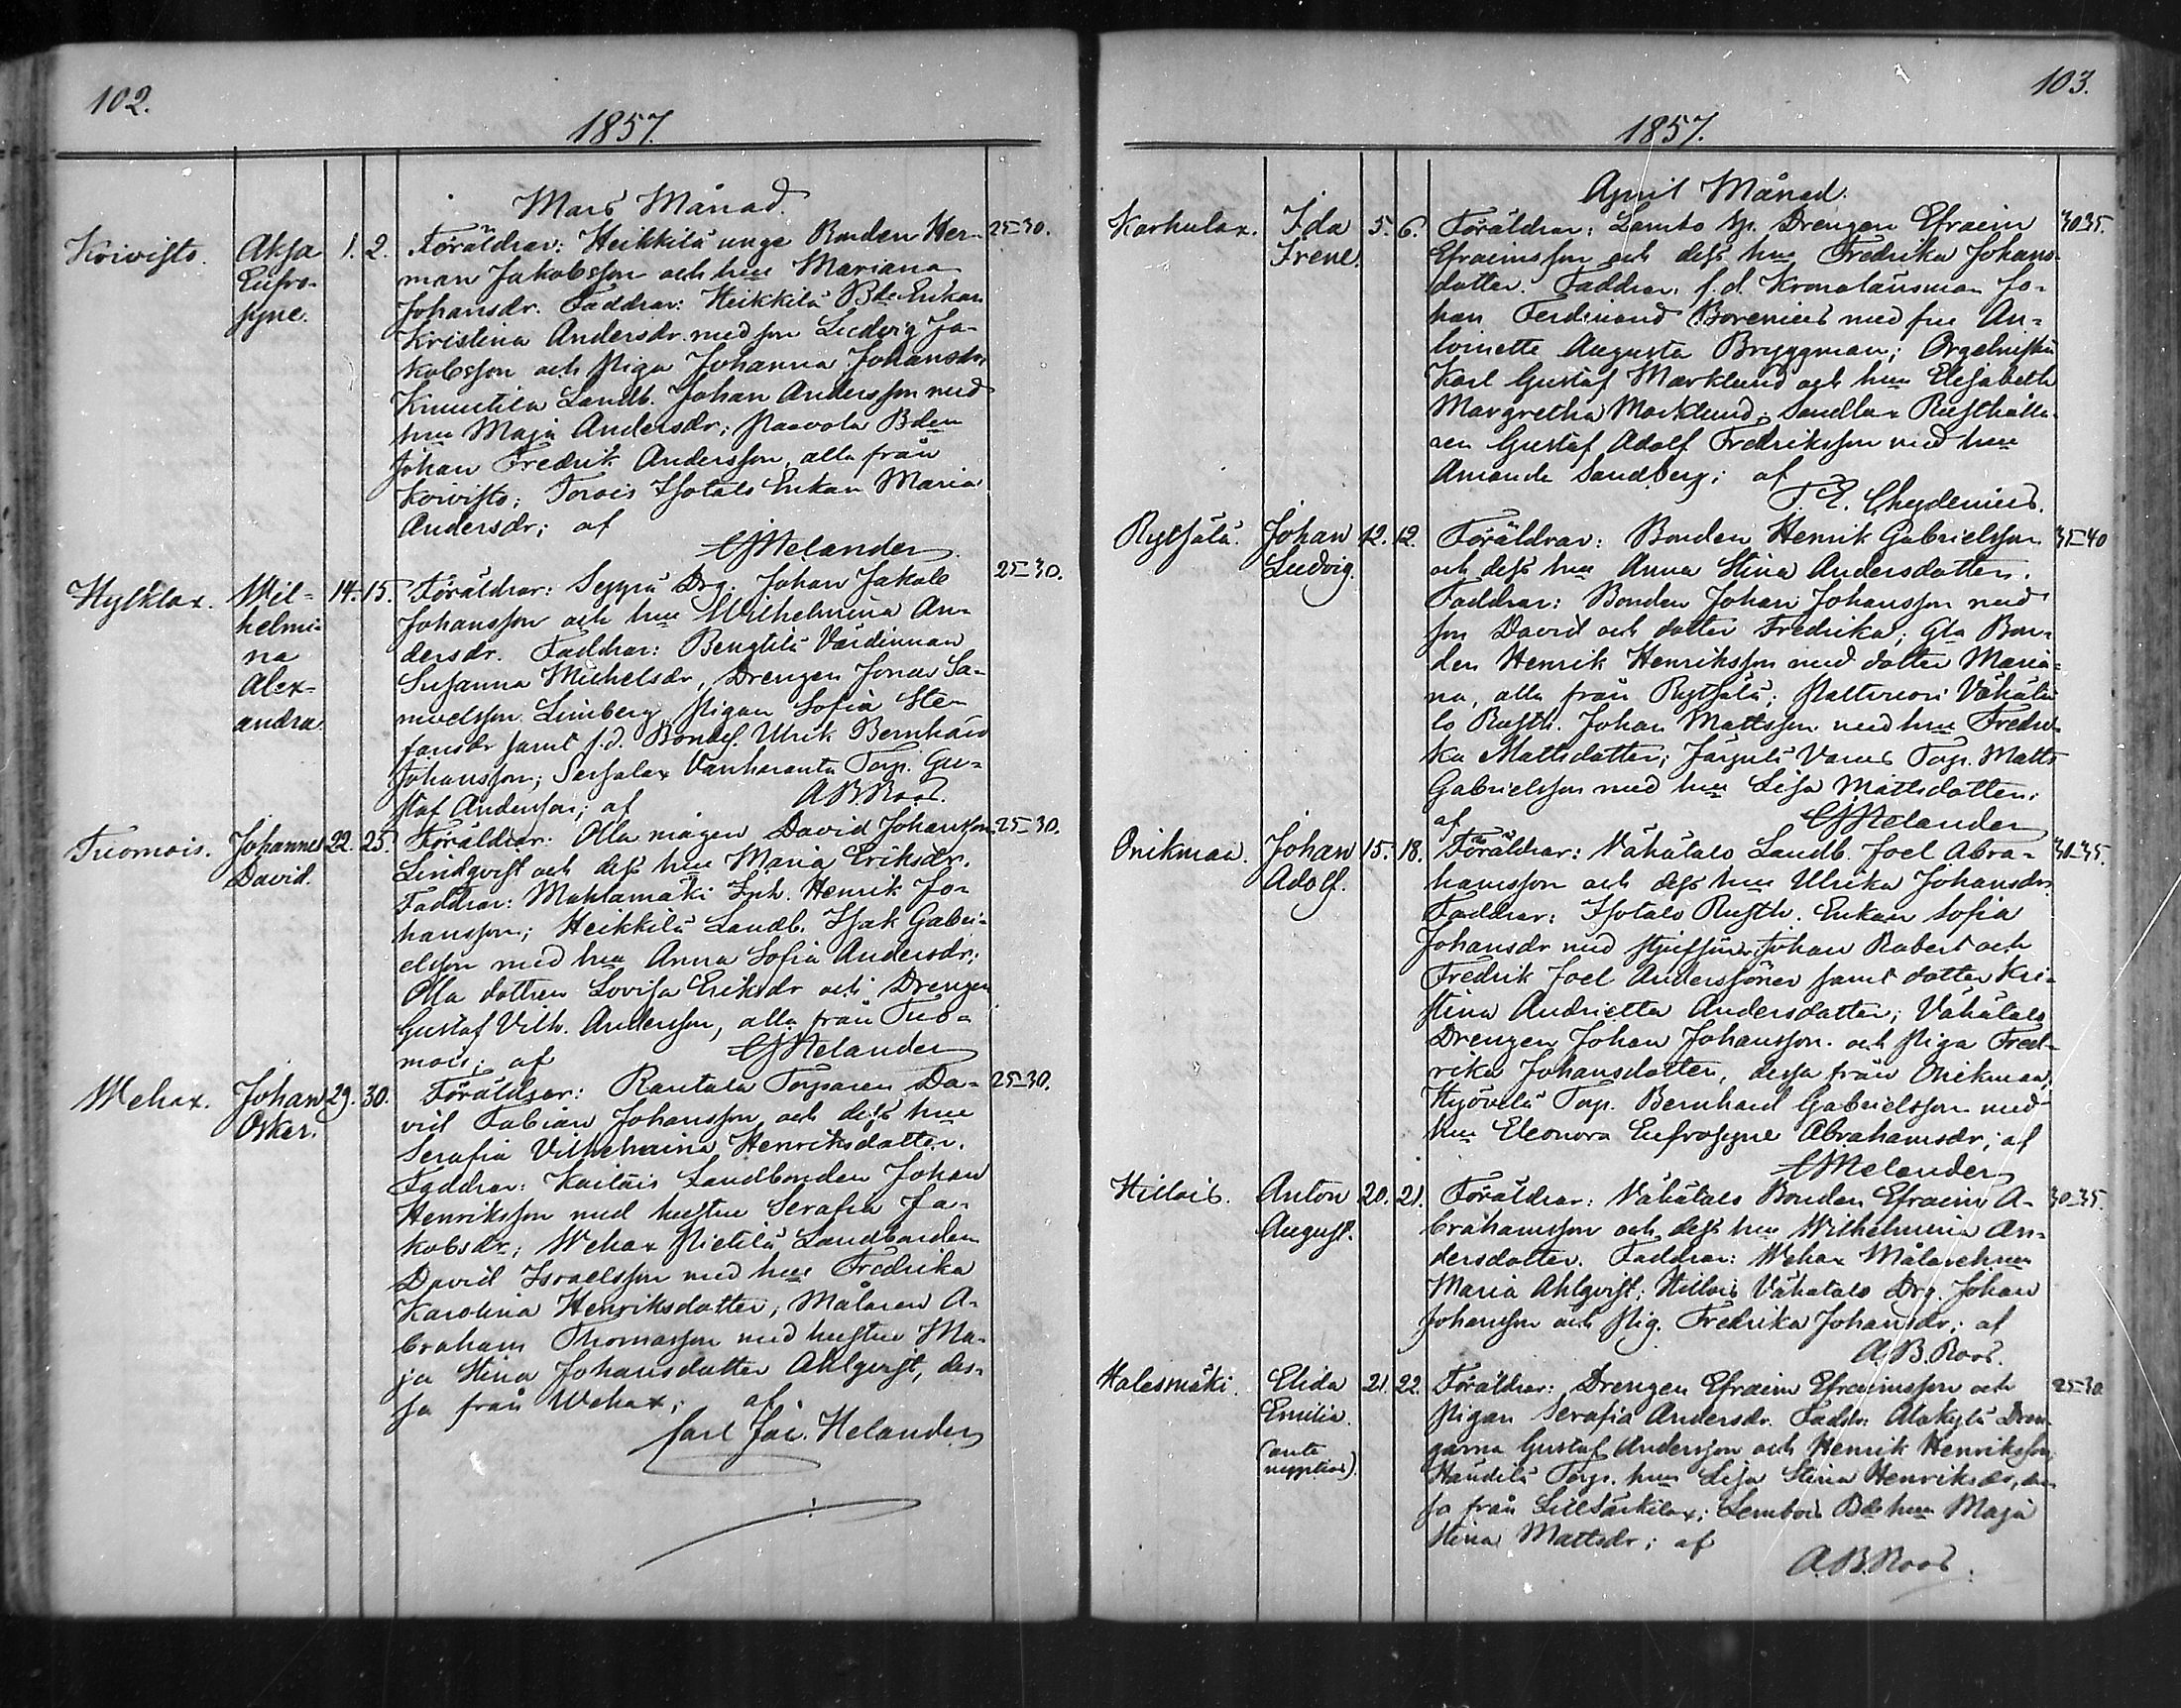 102.
1857.
Mars Månad.
Koivisto. Aksa Eufrosyne. 1. 2. Föräldrar: Heikkilä unge Bonden Her- 25-30.
man Jakobsson och hu Mariana
Johansdr. Faddrar: Heikkilä Bde Enkan
Kristina Andersdr. med son Ludvig Ja-
kobsson och Piga Johanna Johansdr,
Knuutila Landb. Johan Andersson med
hu Maja Andersdr; Paavola Bden
Johan Fredrik Andersson, alla från
Koivisto; Torois Isotalo Enkan Maria
Andersdr; af
CJHelander.
Hylklax. Wilhelmina Alexandra 14. 15. Föräldrar: Seppä Drg. Johan Jakob 25-30.
Johansson och hu Wilhelmina An-
dersdr. Faddrar: Bengtilä Värdinnan
Susanna Michelsdr, Drengen Jonas Sa-
muelsson Limberg Pigan Sofia Ste-
fansdr samt f.d. Bondes. Ulrik Bernhard
Johansson; Sarsalax Vanharanta Torp. Gu-
staf Andersson; af
A.B.Roos.
Tuomois. Johannes David. 22. 25. Föräldrar: Olla mågen David Johansson 25-30.
Lindqvist och dess hu Maria Eriksdr.
Faddrar: Mahlamäki Inh. Henrik Jo-
hansson; Heikkilä Landb. Isak Gabri-
elsson med hu Anna Sofia Andersdr;
Olla dottren Lovisa Eriksdr och Drengen
Gustaf Vilh. Andersson, alla från Tuo-
mois; af
CJHelander
Wehax. Johan Oskar. 29. 30. Föräldrar: Rantala Torparen Da- 25-30.
vid Fabian Johansson och dess hu
Serafia Vilhelmina Henriksdotter.
Faddrar: Kailais Landbonden Johan
Henriksson med hustru Serafia Ja-
kobsdr; Wehax Pietilä Landbonden
David Israelsson med hu Fredrika
Karolina Henriksdotter; Målaren A-
braham Thomasson med hustru Ma-
ja Stina Johansdotter Ahlqvist, des-
sa från Wehax; af
Carl Jac. Helander
103.
1857.
April Månad.
Karhulax. Ida Irene. 5. 6. Föräldrar: Lambo Drengen Efraim 30 35.
Efraimsson och dess hu Fredrika Johans-
dotter. Faddrar: f.d. Kronolänsman Jo-
han Ferdinand Borenius med fru An-
toinette Augusta Bryggman; Orgelnisten
Karl Gustaf Marklund och hu Elisabeth
Margretha Marklund; Sandlax Rusthålla-
ren Gustaf Adolf Fredriksson med hu
Amanda Sandberg; af
T. E. Chydenius.
Rytsälä. Johan Ludvig. 12. 12. Föräldrar: Bonden Henrik Gabrielsson 35-40
och dess hu Anna Stina Andersdotter.
Faddrar: Bonden Johan Johansson med
son David och dotter Fredrika; Gla Bon-
den Henrik Henriksson med dotter Maria-
na, alla från Rytsälä; Vähäta-
lo Rusth. Johan Mattsson med hu Fredri-
ka Mattsdotter; Torp. Matts
Gabrielsson med hu Lisa Mattsdotter;
af
CJHelander
Onikmaa. Johan Adolf. 15. 18. Föräldrar: Vähätalo Landb. Joel Abra- 30-35.
hamsson och dess hu Ulrika Johansdr.
Faddrar: Isotalo Rusth. Enkan Sofia
Johansdr med stjufsöner Johan Robert och
Fredrik Joel Anderssöner samt dotter Kri-
stina Andrietta Andersdotter; Vähätalo
Drengen Johan Johansson och Piga Fred-
rika Johansdotter, dessa från Onikmaa;
Hyövelä Torp. Bernhard Gabrielsson med
hu Eleonora Eufrosyne Abrahamsdr; af
CJHelander
Hillois. Anton August. 20. 21. Föräldrar: Vähätalo Bonden Efraim A- 30-35.
brahamsson och dess hu Wilhelmina An-
dersdotter. Faddrar: Wehax Målarehu
Maria Ahlqvist; Hillois Vähätalo Drg. Johan
Johansson och Pig. Fredrika Johansdr; af
A.B.Roos.
Halesmäki. Elida Emilia. (ante nuptias). 21. 22. Föräldrar: Drengen Efraim Efraimsson och 25-30
Pigan Serafia Andersdr. Faddr: Alakylä Dren-
garna Gustaf Andersson och Henrik Henriksson,
Torp. hu Lisa Stina Henriksdr, des-
sa från Lillsärkilax; Lembois Bde hu Maja
Stina Mattsdr; af
A.B.Roos.